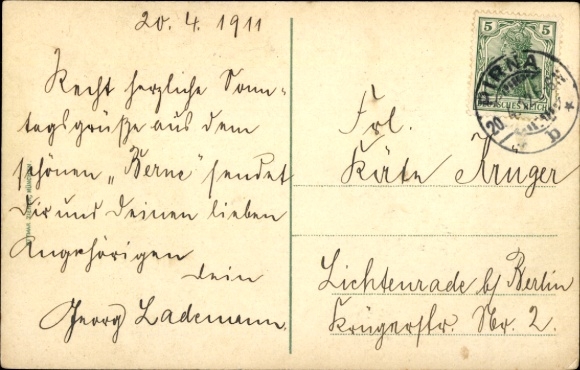 20. 4. 1911
Recht herzliche Sonn-
tagsgrüße aus dem
schönen „Berne" sendet
Dir und Deinen lieben
Angehörigen
Dein
Georg Lademann.
5 5
DEUTSCHES REICH
PIRNA
20.
b
Frl.
Käte Krüger
Lichtenrade b/ Berlin
Krügerstr. Nr. 2.